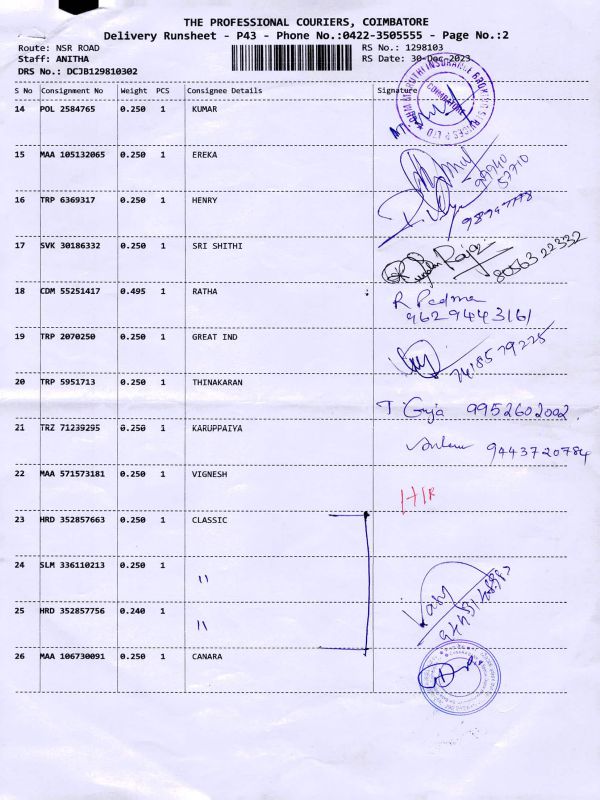 THE PROFESSIONAL COURIERS, COIMBATORE
Delivery Runsheet - P43 - Phone No.:0422-3505555 - Page No.:2
Route: NSR ROAD RS No.: 1298103
Staff: ANITHA RS Date: 30-Dec-2023
DRS No.: DCJB129810302
S No Consignment No Weight PCS Consignee Details Signature
14 POL 2584765 0.250 1 KUMAR
15 MAA 105132065 0.250 1 EREKA
16 TRP 6369317 0.250 1 HENRY
17 SVK 30186332 0.250 1 SRI SHITHI
8056322332
18 CDM 55251417 0.495 1 RATHA
R Padma
9629443161
19 TRP 2070250 0.250 1 GREAT IND
20 TRP 5951713 0.250 1 THINAKARAN
9952602002
21 TRZ 71239295 0.250 1 KARUPPAIYA
9443720784
22 MAA 571573181 0.250 1 VIGNESH
23 HRD 352857663 0.250 1 CLASSIC
24 SLM 336110213 0.250 1 "
25 HRD 352857756 0.240 1 "
Vasu
26 MAA 106730091 0.250 1 CANARA